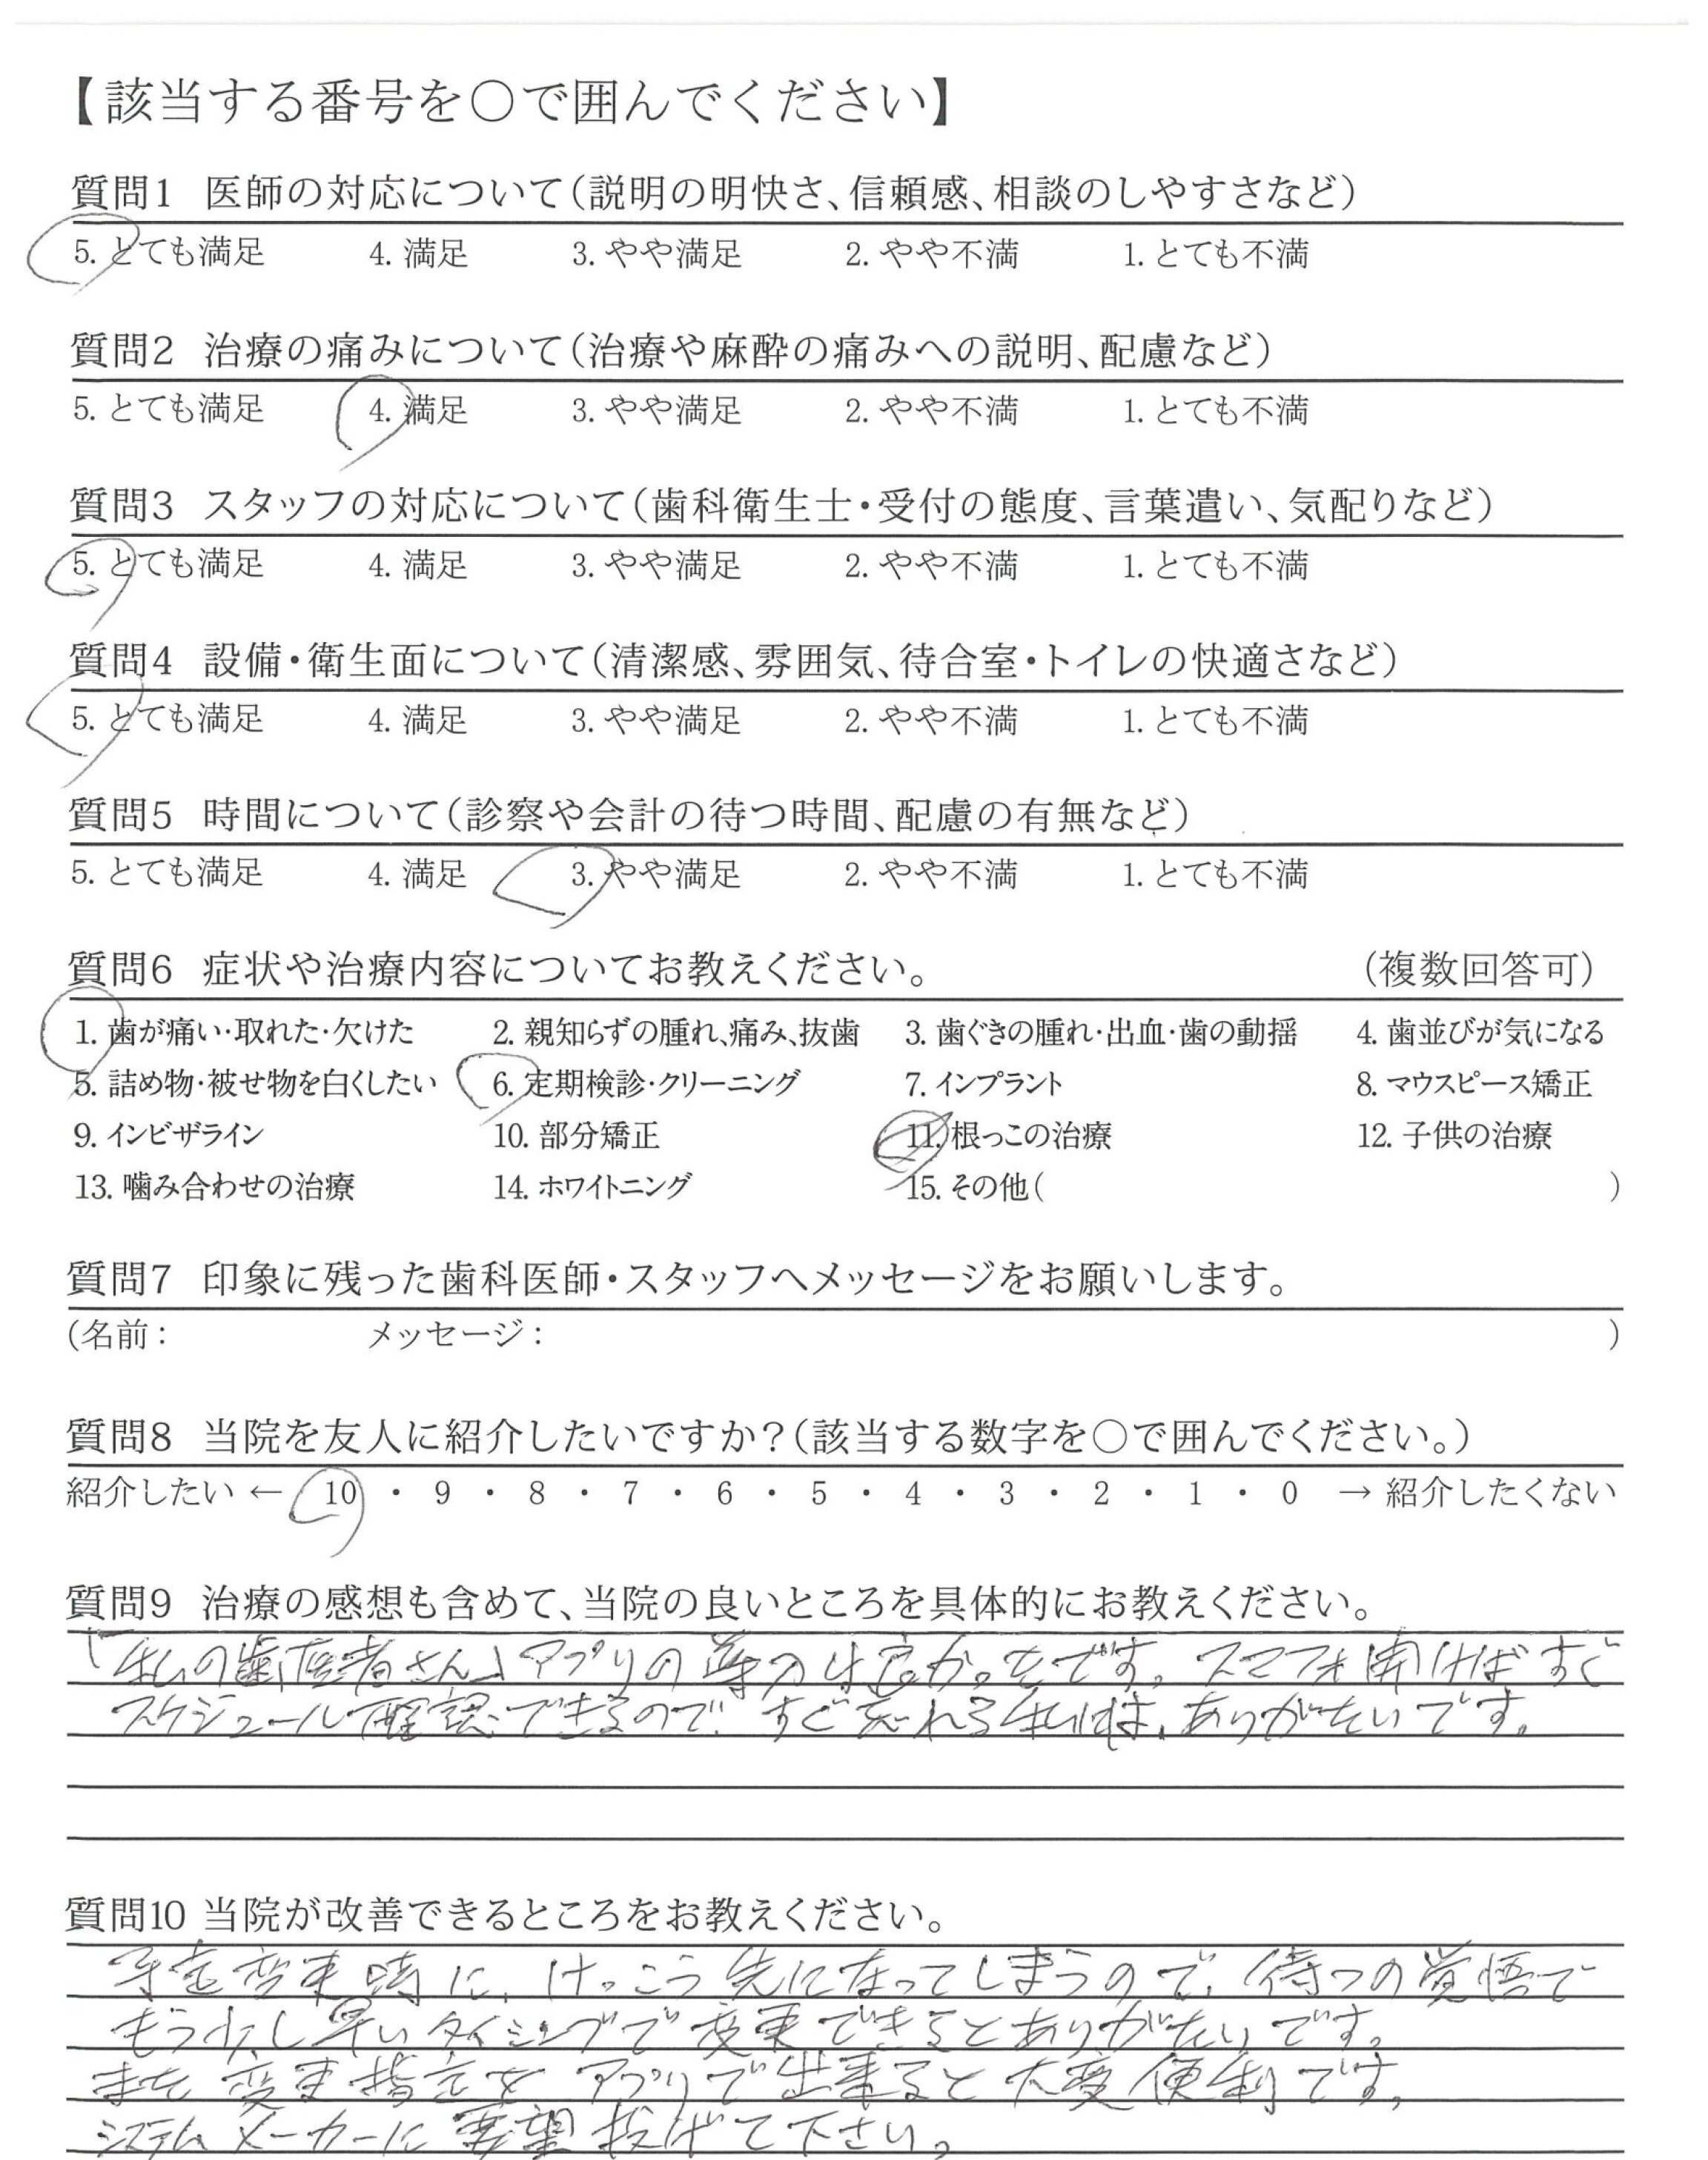 【該当する番号を○で囲んでください】
質問1 医師の対応について（説明の明快さ、信頼感、相談のしやすさなど）
5. とても満足 4. 満足 3. やや満足 2. やや不満 1. とても不満
質問2 治療の痛みについて（治療や麻酔の痛みへの説明、配慮など）
5. とても満足 4. 満足 3. やや満足 2. やや不満 1. とても不満
質問3 スタッフの対応について（歯科衛生士・受付の態度、言葉遣い、気配りなど）
5. とても満足 4. 満足 3. やや満足 2. やや不満 1. とても不満
質問4 設備・衛生面について（清潔感、雰囲気、待合室・トイレの快適さなど）
5. とても満足 4. 満足 3. やや満足 2. やや不満 1. とても不満
質問5 時間について（診察や会計の待つ時間、配慮の有無など）
5. とても満足 4. 満足 3. やや満足 2. やや不満 1. とても不満
質問6 症状や治療内容についてお教えください。 （複数回答可）
1. 歯が痛い・取れた・欠けた 2. 親知らずの腫れ、痛み、抜歯 3. 歯ぐきの腫れ・出血・歯の動揺 4. 歯並びが気になる
5. 詰め物・被せ物を白くしたい 6. 定期検診・クリーニング 7. インプラント 8. マウスピース矯正
9. インビザライン 10. 部分矯正 11. 根っこの治療 12. 子供の治療
13. 噛み合わせの治療 14. ホワイトニング 15. その他（ ）
質問7 印象に残った歯科医師・スタッフへメッセージをお願いします。
（名前： メッセージ： ）
質問8 当院を友人に紹介したいですか？（該当する数字を○で囲んでください。）
紹介したい ← 10 ・ 9 ・ 8 ・ 7 ・ 6 ・ 5 ・ 4 ・ 3 ・ 2 ・ 1 ・ 0 → 紹介したくない
質問9 治療の感想も含めて、当院の良いところを具体的にお教えください。
「私の歯医者さん」アプリの導入は良かったです。スマフォ開けばすぐ
スケジュール確認できるので、すぐ忘れる私は、ありがたいです。
質問10 当院が改善できるところをお教えください。
予定変更時に、けっこう先になってしまうので、待つの覚悟で
もう少し早いタイミングで変更できるとありがたいです。
また変更指定をアプリで出来ると大変便利です。
システムメーカーに要望投げて下さい。